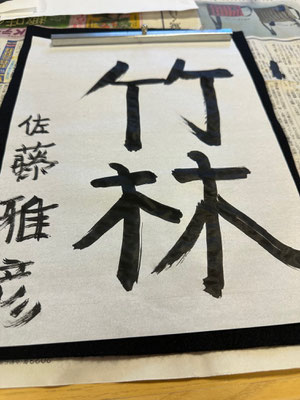 竹林
佐藤雅彦